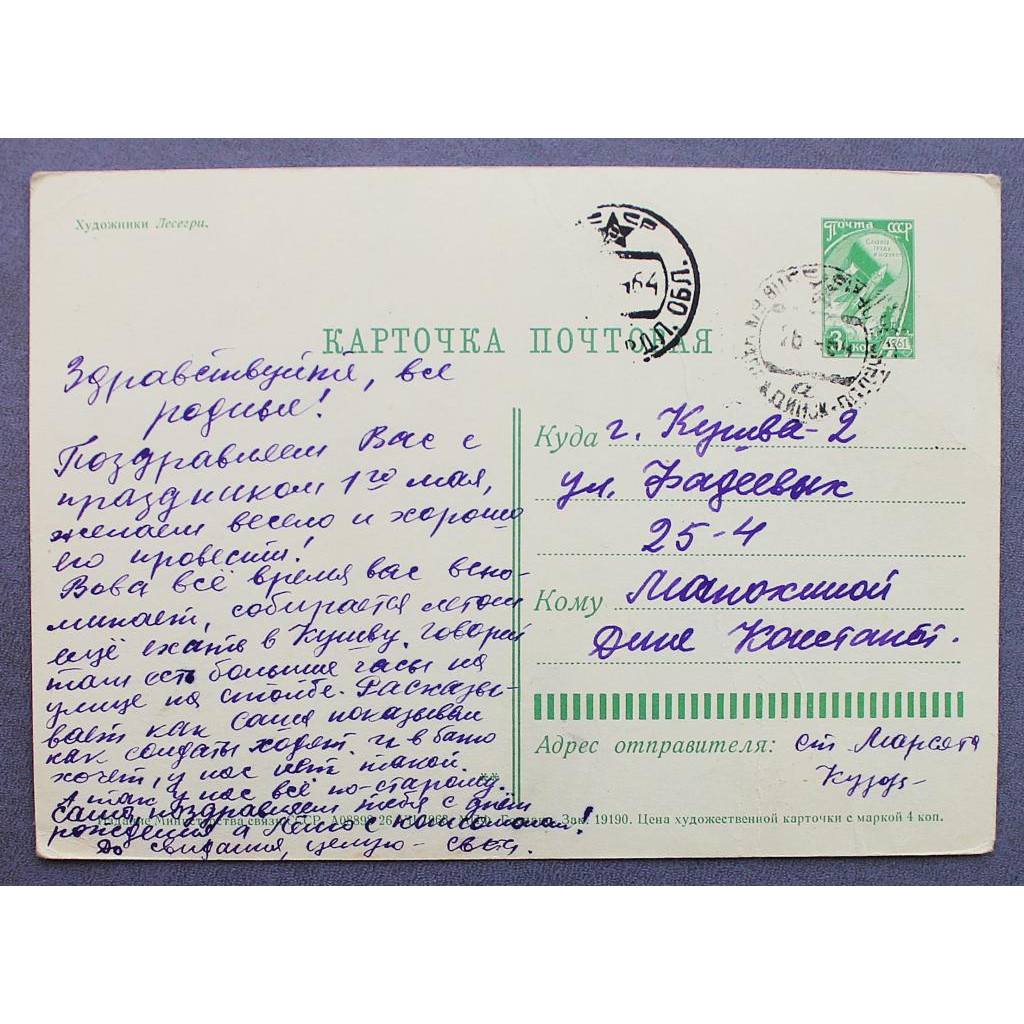 Художники Лесегри.
Почта СССР
64
ДЛ. ОБЛ.
КАРТОЧКА ПОЧТОВАЯ
Здравствуйте, все
родные!
Поздравляем Вас с
праздником 1го мая,
желаем весело и хорошо
его провести!
Вова всё время вас вспо-
минает, собирается летом
ещё ехать в Кушву, говорит
там есть большие часы на
улице на столбе. Рассказы-
вает как Саша показывал
как солдаты ходят. и в баню
хочет, у нас нет такой.
А так у нас всё по-старому.
Саша поздравляем тебя с днём
рождения а Лёню с комсомолом!
До свидания, целую
Куда г. Кушва-2
ул. Фадеевых
25-4
Кому Манохиной
Дине Констант.
Адрес отправителя: ст.
Издание Министерства связи СССР. Зак. 19190. Цена художественной карточки с маркой 4 коп.